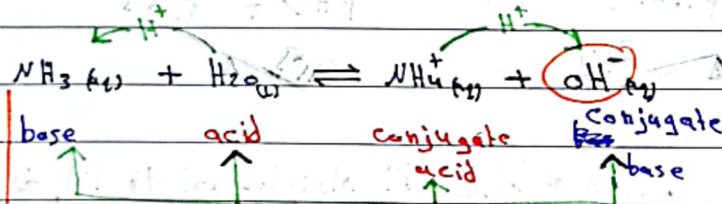 H⁺ H⁺
NH3 (aq) + H2O(l) ⇌ NH4⁺(aq) + OH⁻(aq)
base acid conjugate conjugate
acid base